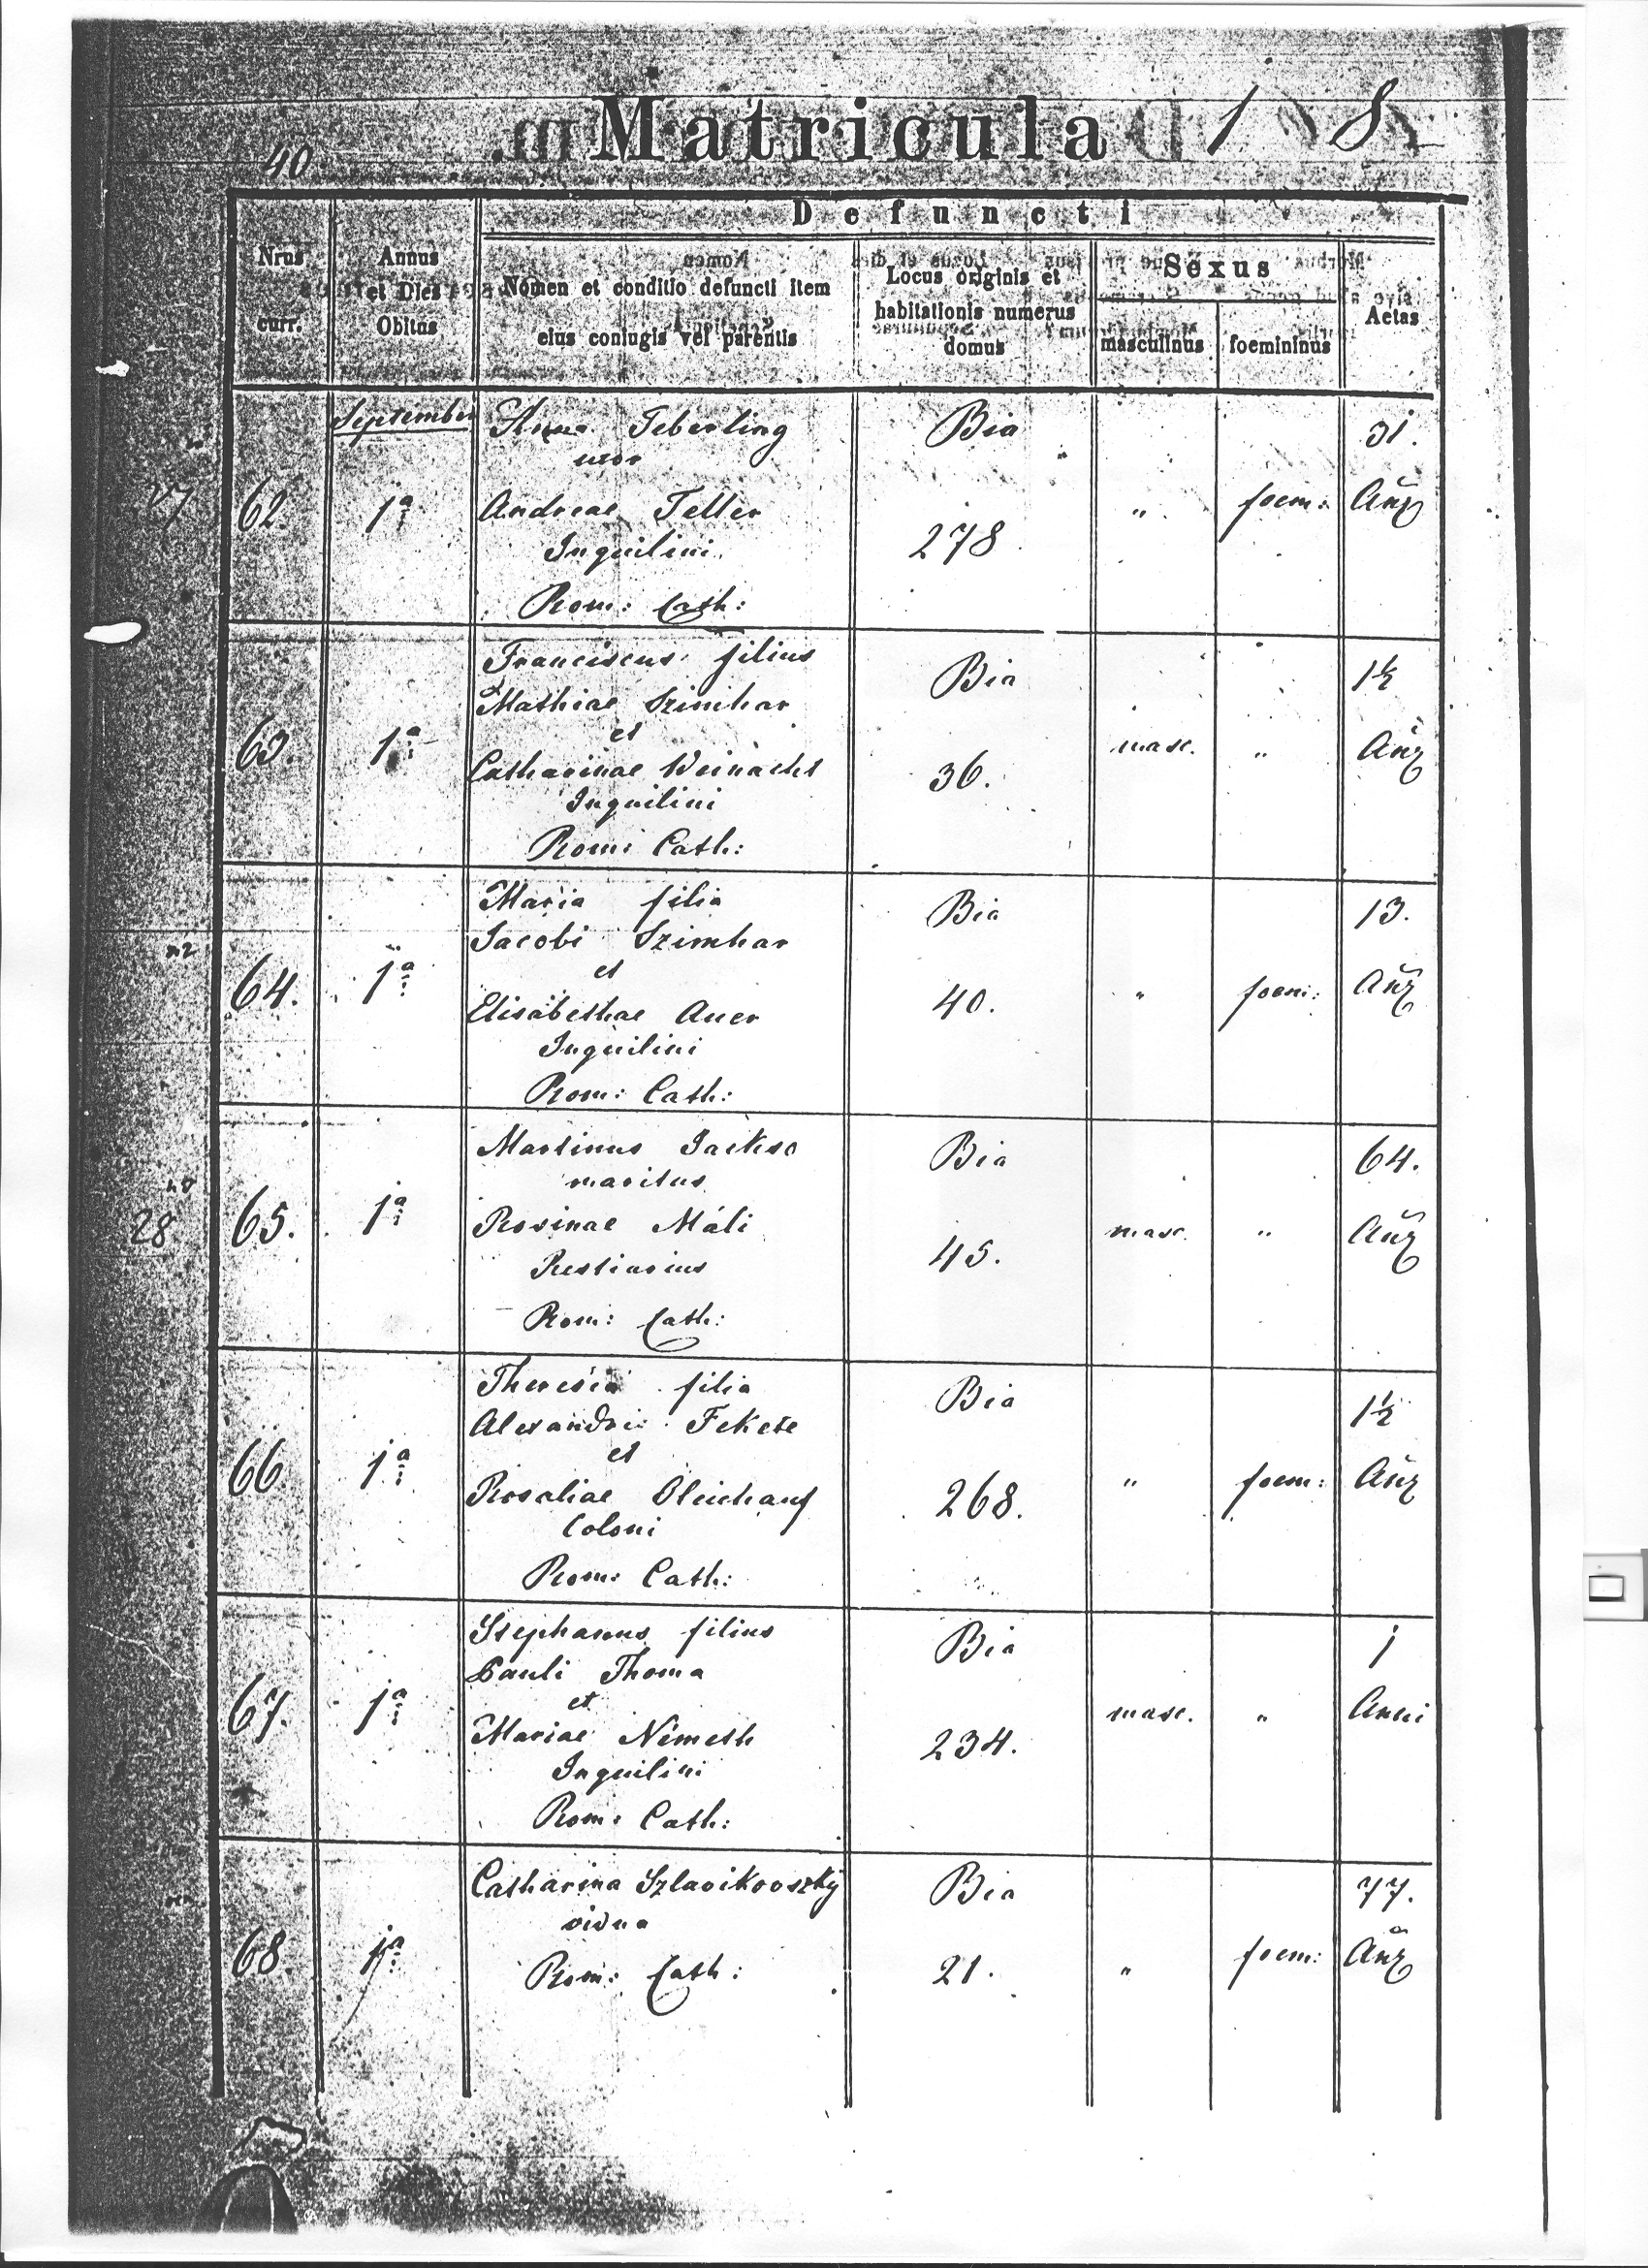 40.
Matricula 1 8
Defuncti
Nrus curr.
Annus et Dies Obitus
Nomen et conditio defuncti item eius coniugis vel parentis
Locus originis et habitationis numerus domus
Sexus
masculinus
foemininus
Aetas
September
27
62. 1a
Anna Teberling
uxor
Andreae Teller
Inquilini
Rom: Cath:
Bia
278
"
foem:
31.
Añz
63. 1a
Franciscus filius
Mathiae Szimhar
et
Catharinae Weinacht
Inquilini
Rom: Cath:
Bia
36.
masc.
"
1½
Añz
64. 1a
Maria filia
Jacobi Szimhar
et
Elisabethae Auer
Inquilini
Rom: Cath:
Bia
40.
"
foem:
13.
Añz
28
65. 1a
Martinus
maritus
Rosinae Máli
Restiarius
Rom: Cath:
Bia
45.
masc.
"
64.
Añz
66. 1a
Theresia filia
Alexandri Fekete
et
Rosaliae
Coloni
Rom: Cath:
Bia
268.
"
foem:
1½
Añz
67. 1a
Stephanus filius
Pauli Thoma
et
Mariae Németh
Inquilini
Rom: Cath:
Bia
234.
masc.
"
1
Anni
68. 1a
Catharina Szlavikovszky
vidua
Rom: Cath:
Bia
21.
"
foem:
77.
Añz